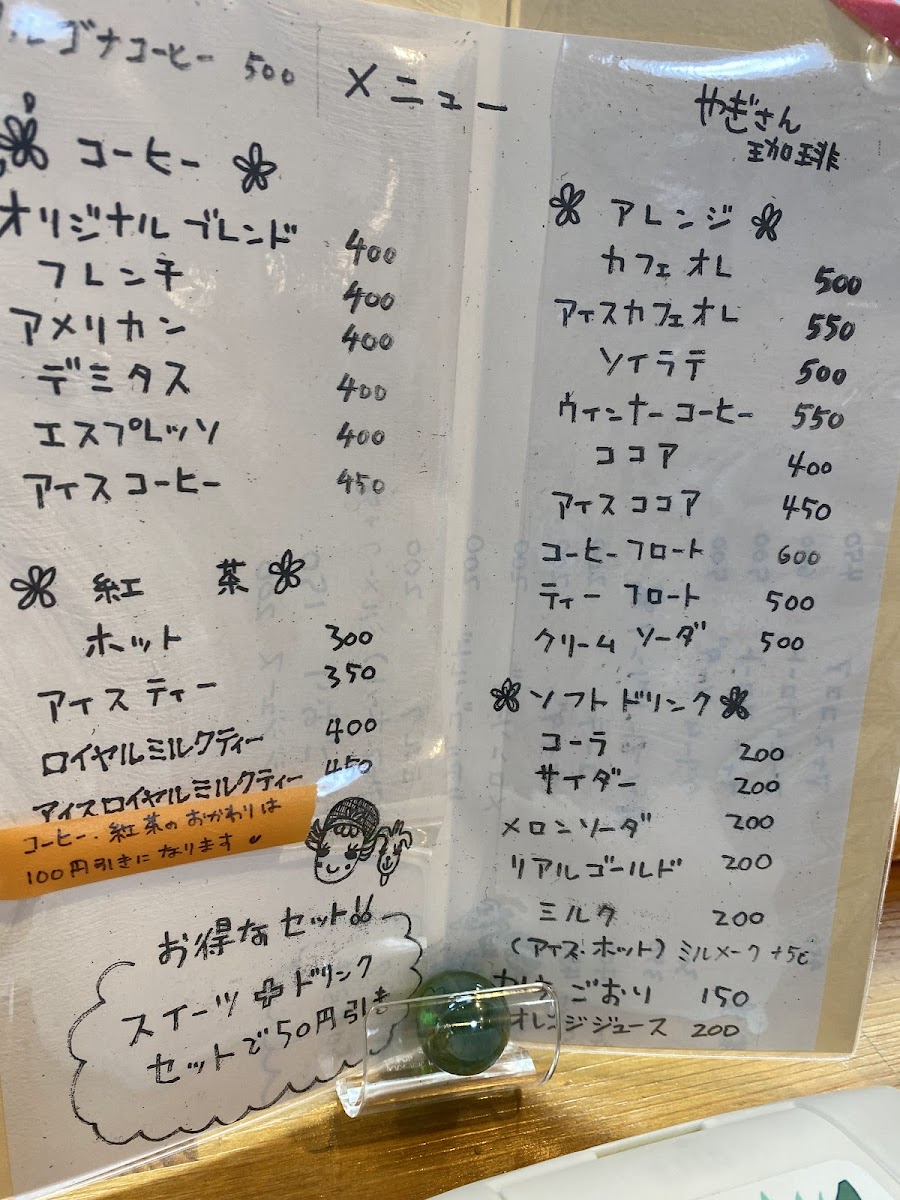 ルゴナコーヒー 500
メニュー
やぎさん
珈琲
コーヒー
オリジナルブレンド 400
フレンチ 400
アメリカン 400
デミタス 400
エスプレッソ 400
アイスコーヒー 450
紅 茶
ホット 300
アイスティー 350
ロイヤルミルクティー 400
アイスロイヤルミルクティー 450
コーヒー・紅茶のおかわりは
100円引きになります
お得なセット!!
スイーツ+ドリンク
セットで50円引き
アレンジ
カフェオレ 500
アイスカフェオレ 550
ソイラテ 500
ウィンナーコーヒー 550
ココア 400
アイスココア 450
コーヒーフロート 600
ティーフロート 500
クリームソーダ 500
ソフトドリンク
コーラ 200
サイダー 200
メロンソーダ 200
リアルゴールド 200
ミルク 200
(アイス・ホット) ミルメーク +50
ごおり 150
オレンジジュース 200